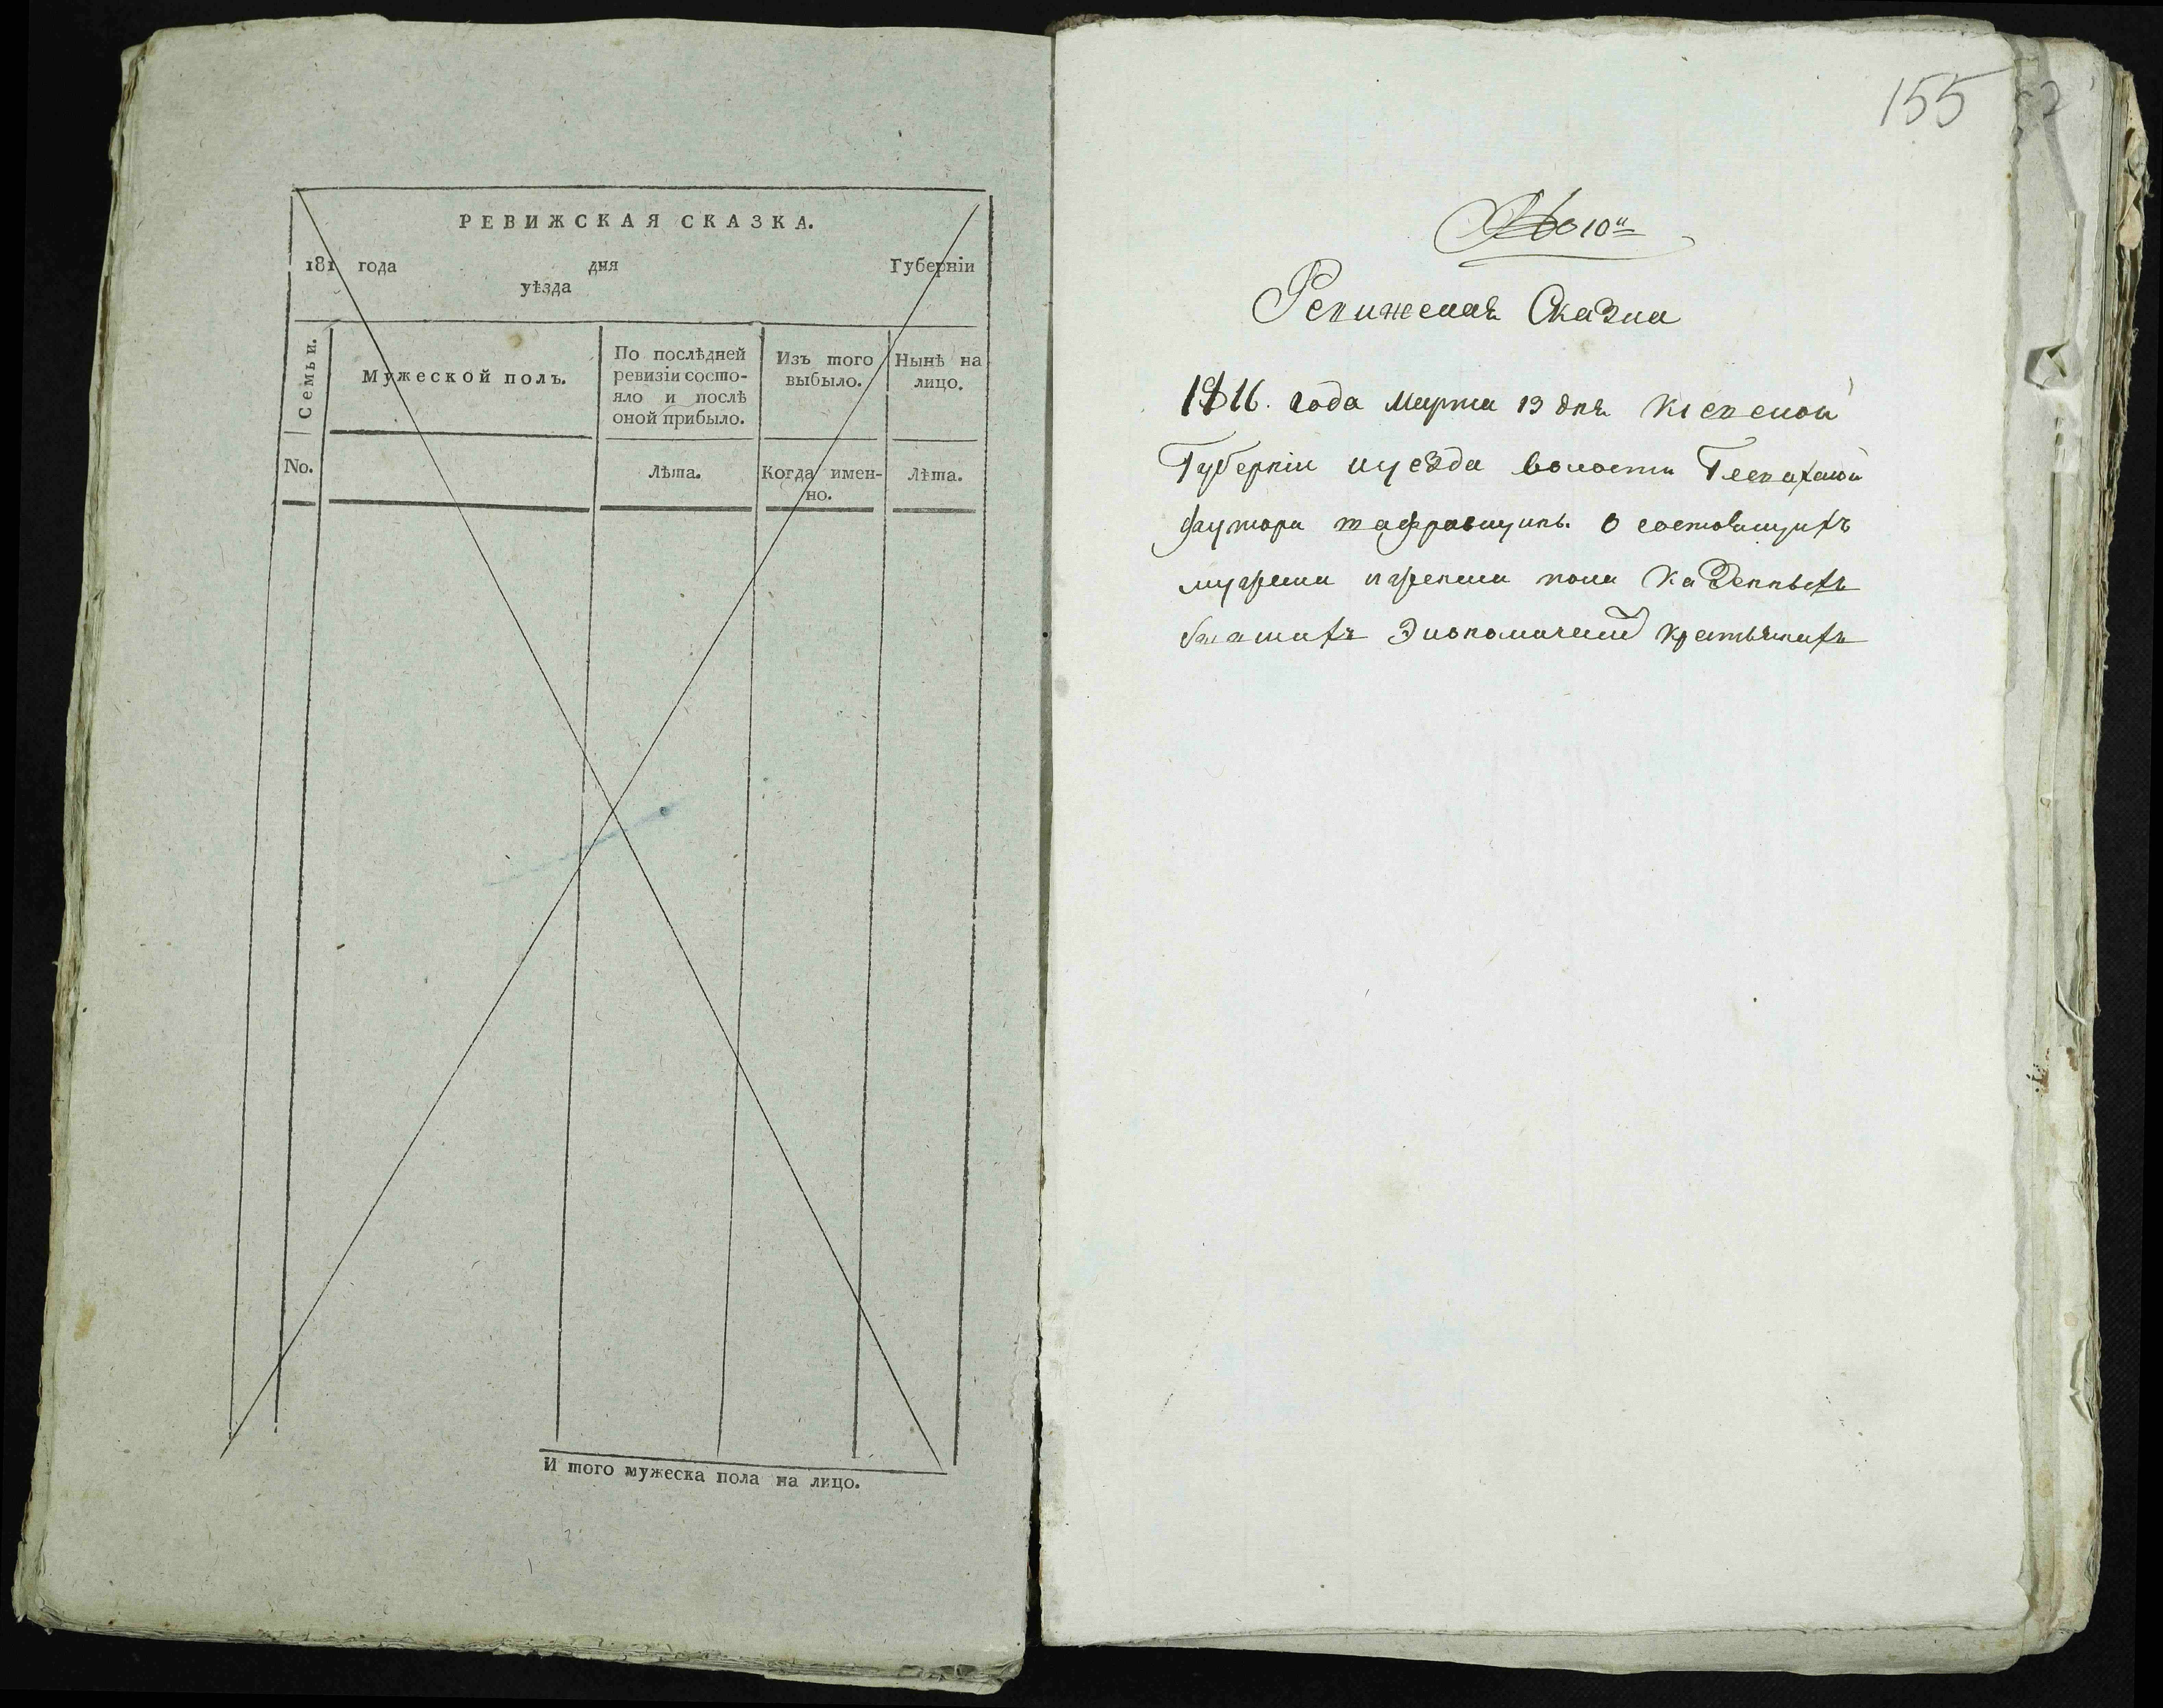 РЕВИЖСКАЯ СКАЗКА.
181 года дня Губерніи
уѣзда
Семьи.
Мужеской полъ.
По послѣдней
ревизіи состо-
яло и послѣ
оной прибыло.
Изъ того
выбыло.
Нынѣ на
лицо.
No.
Лѣта.
Когда имен-
но.
Лѣта.
И того мужеска пола на лицо.
155
№ 10й
Ревижская Сказка
1816. года марта 13 дня Кіевской
Губерніи иуезда волости
хутора О состоящихъ
мужеска иженска пола Казенныхъ
Экономическ Крестьянахъ